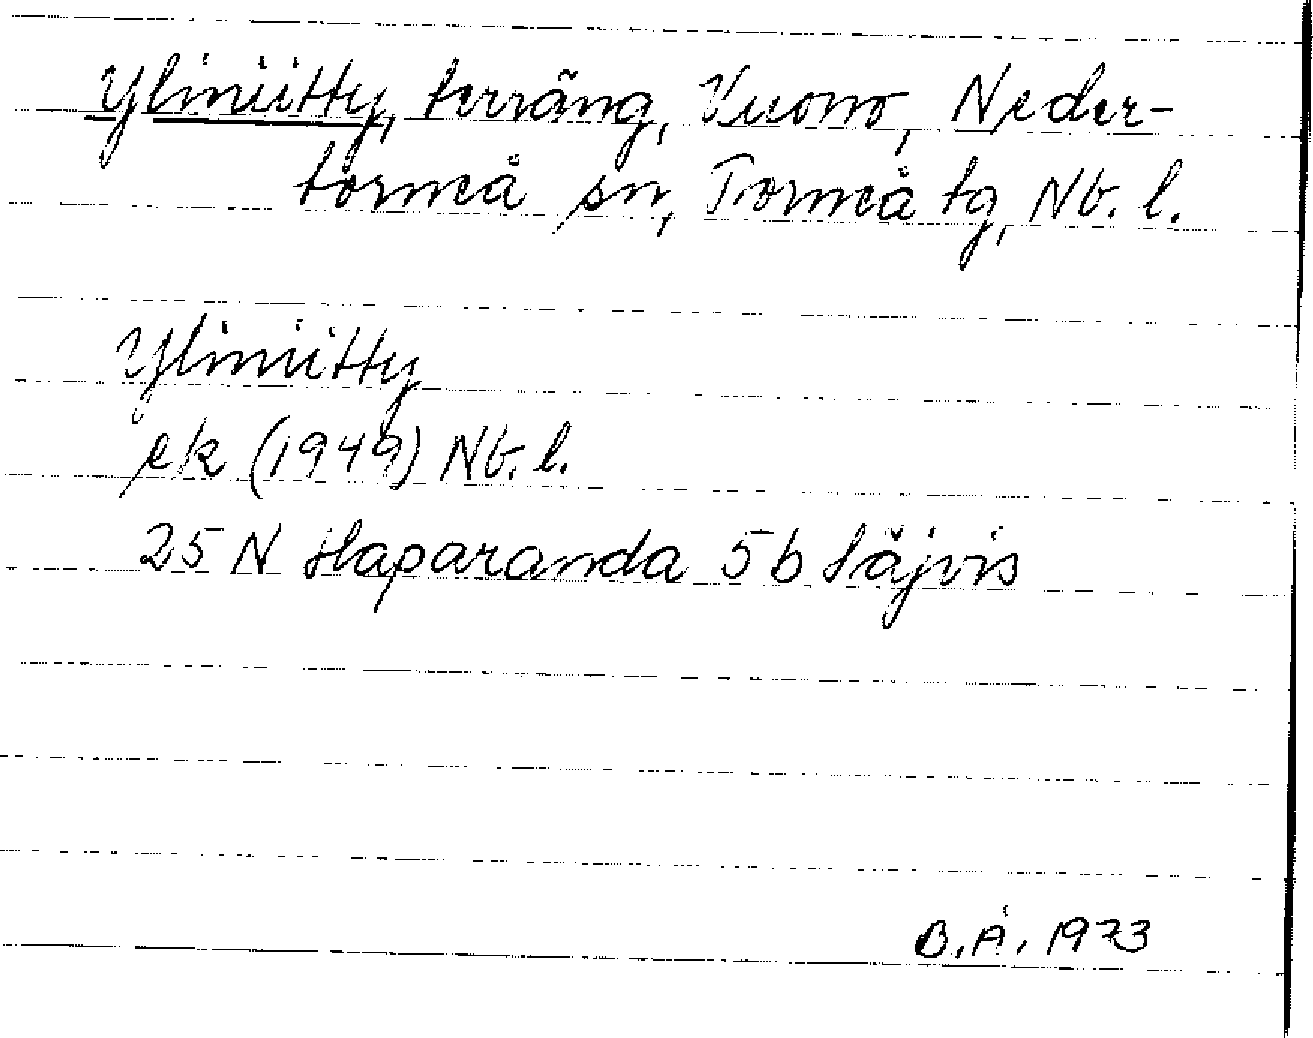 Yliniitty, terräng, Vuono, Neder-
torneå sn, Torneå tg, Nb. l.
Yliniitty
ek (1949) Nb. l.
25 N Haparanda 5 b Säjvis
B.Å. 1973